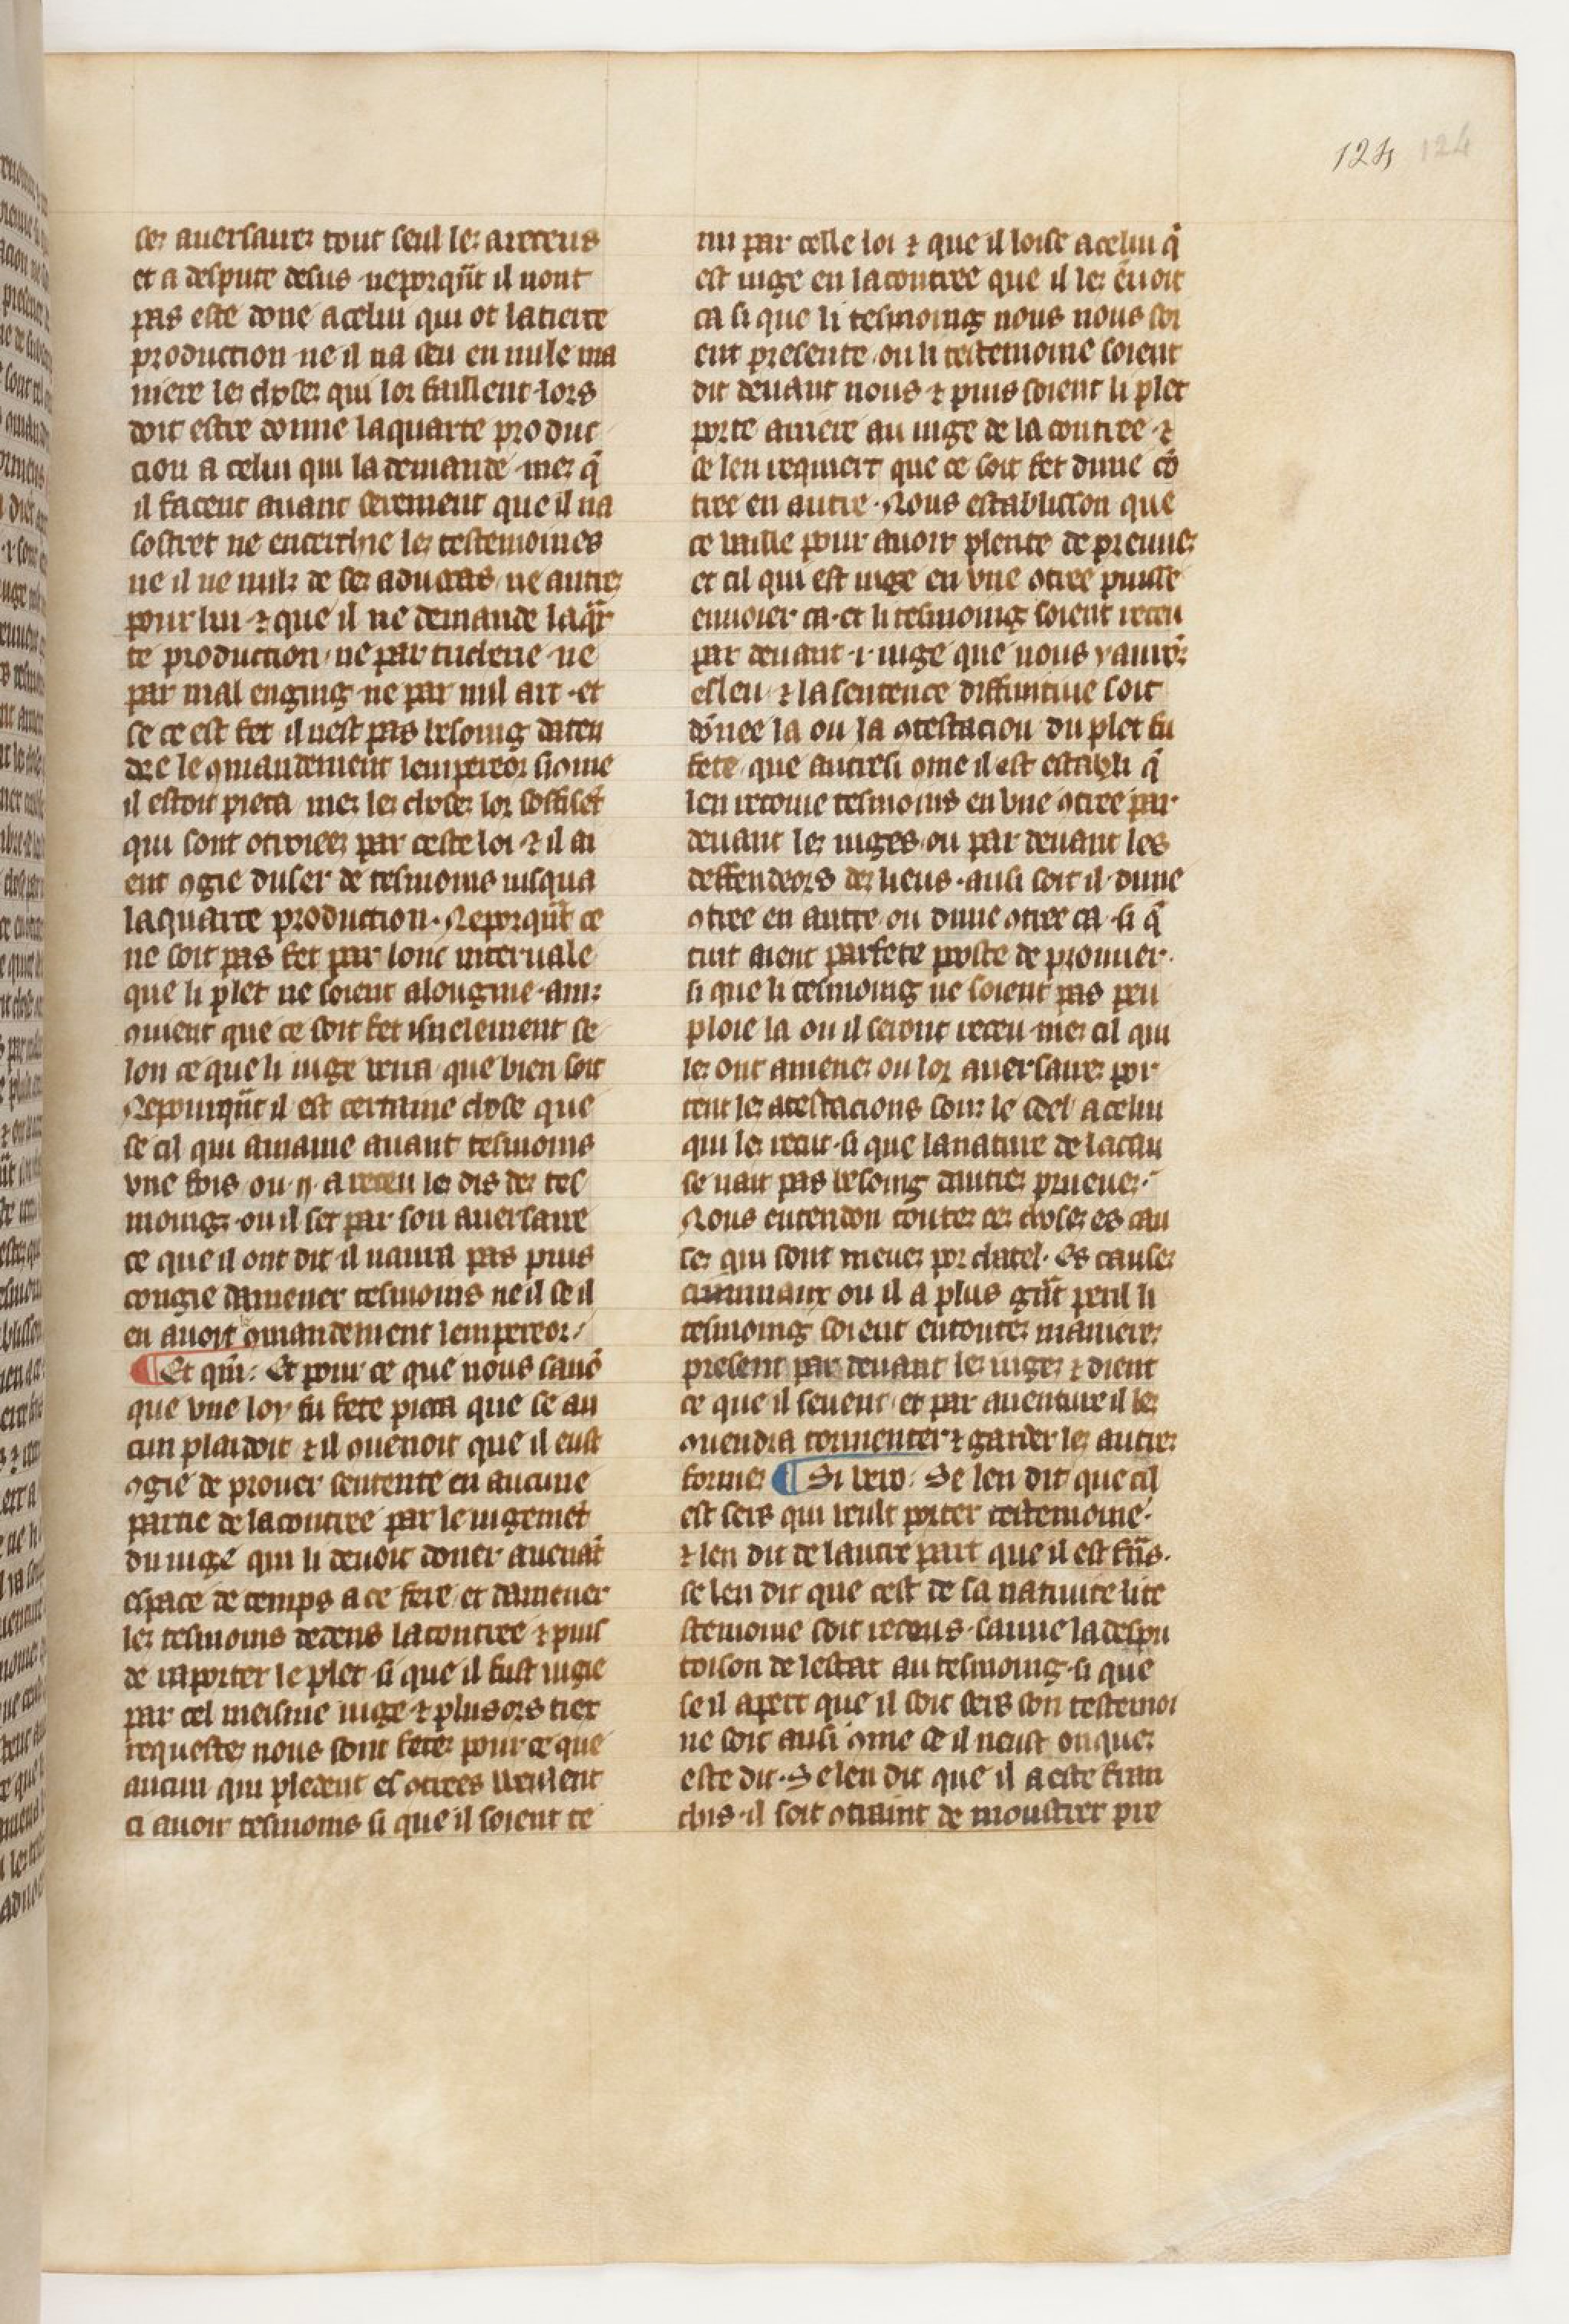 124 124
ses auersaires tout seul les a receus
et a despute desus · neporqñt il nont
pas este done a celui qui ot la tierce
production · ne il na seu en nule ma
niere les choses qui lor faillent · lors
doit estre donne la quarte produc
cion a celui qui la demande · mes q̃
il facent auant serement que il na
sostret ne encerchie les testemoines
ne il ne nuls de ses aduocas · ne autres
pour lui · ⁊ que il ne demande la q̃r
te production · ne par tricherie · ne
par mal enging · ne par nul art · et
se ce est fet il nest pas besoing daten
dre le ꝯmandement lempereor si ꝯme
il estoit pieca · mes les choses lor soffiset̃
qui sont otroiees par ceste loi · ⁊ il ai
ent ꝯgie duser de tesmoins iusqua
la quarte production · Neporqñt ce
ne soit pas fet par lonc interuale
que li plet ne soient alongnie · ains
ꝯuient que ce soit fet isnelement se
lon ce que li iuge verra que bien soit
Nepourqñt il est certaine chose que
se cil qui amaine auant tesmoins
vne fois · ou · ij · a receu les dis des tes
moings · ou il set par son auersaire
ce que il ont dit · il naura pas puis
congie damener tesmoins ne il se il
en auoit ꝯmandement lempereor ·
¶ Et qm̃ · Et pour ce que nous sauõ
que vne loy fu fete pieca que se au
cun plaidoit · ⁊ il ꝯuenoit que il eust
ꝯgie de prouer sentente en aucune
partie de la contree par le iugemet̃
du iuge qui li deuoit doner auenãt
espace de temps a ce fere · et damener
les tesmoins dedens la contree · ⁊ puis
de raporter le plet · si que il fust iugie
par cel meisme iuge · ⁊ plusors tiex
requestes nous sont fetes pour ce que
aucun qui pledent es ꝯtrees veulent
ci auoir tesmoins si que il soient te
nu par celle loi · ⁊ que il loist a celui q̃
est iuge en la contree que il les ẽuoit
ca si que li tesmoing nous nous soi
ent presente · ou li testemoine soient
dit deuant nous · ⁊ puis soient li plet
porte arriere au iuge de la contree · ⁊
se len requiert que ce soit fet dune cõ
tree en autre · Nous establisson que
ce vaille pour auoir plente de preuues
et cil qui est iuge en vne ꝯtree puisse
enuoier ca · et li tesmoing soient receu
par deuant · i · iuge que nous y aurõs
esleu · ⁊ la sentence diffinitiue soit
dõnee la ou la ꝯtestacion du plet fu
fete · que autresi ꝯme il est establi q̃
len recoiue tesmoins en vne ꝯtree par
deuant les iuges · ou par deuant les
deffendeors des lieus · ausi soit il · dune
ꝯtree en autre · ou dune ꝯtree ca · si q̃
tuit aient parfete poste de prouuer ·
si que li tesmoing ne soient pas peu
ploie la ou il seront receu · mes cil qui
les ont amenes ou lor auersaires por
tent les atestacions souz le seel · a celui
qui les recut · si que la nature de la cau
se nait pas besoing dautres prueues ·
Nous entendon toutes ces choses es cau
ses qui sont meues por chatel · Es causes
criminaux ou il a plus grãt peril li
tesmoing soient en toutes manieres
present par deuant les iuges ⁊ dient
ce que il seuent · et par auenture il les
ꝯuendra tormenter ⁊ garder les autres
formes ¶ Si vero · Se len dit que cil
est sers qui veult porter testemoine ·
⁊ len dit de lautre part que il est frãs ·
se len dit que cest de sa natiuite li te
stemoine soit receus · sauue la despu
toison de lestat au tesmoing · si que
se il apert que il soit sers son testemoi
ne soit ausi ꝯme se il neust onques
este dit · Se len dit que il a este fran
chis · il soit ꝯtraint de moustrer pre